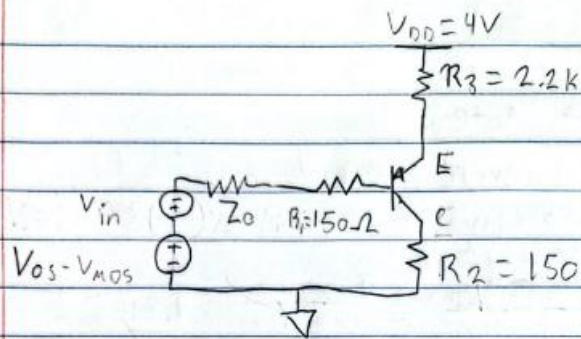 V_DD = 4V
R_3 = 2.2k
E
V_in
Z_0
R_1=150Ω
C
V_OS - V_MOS
R_2 = 150